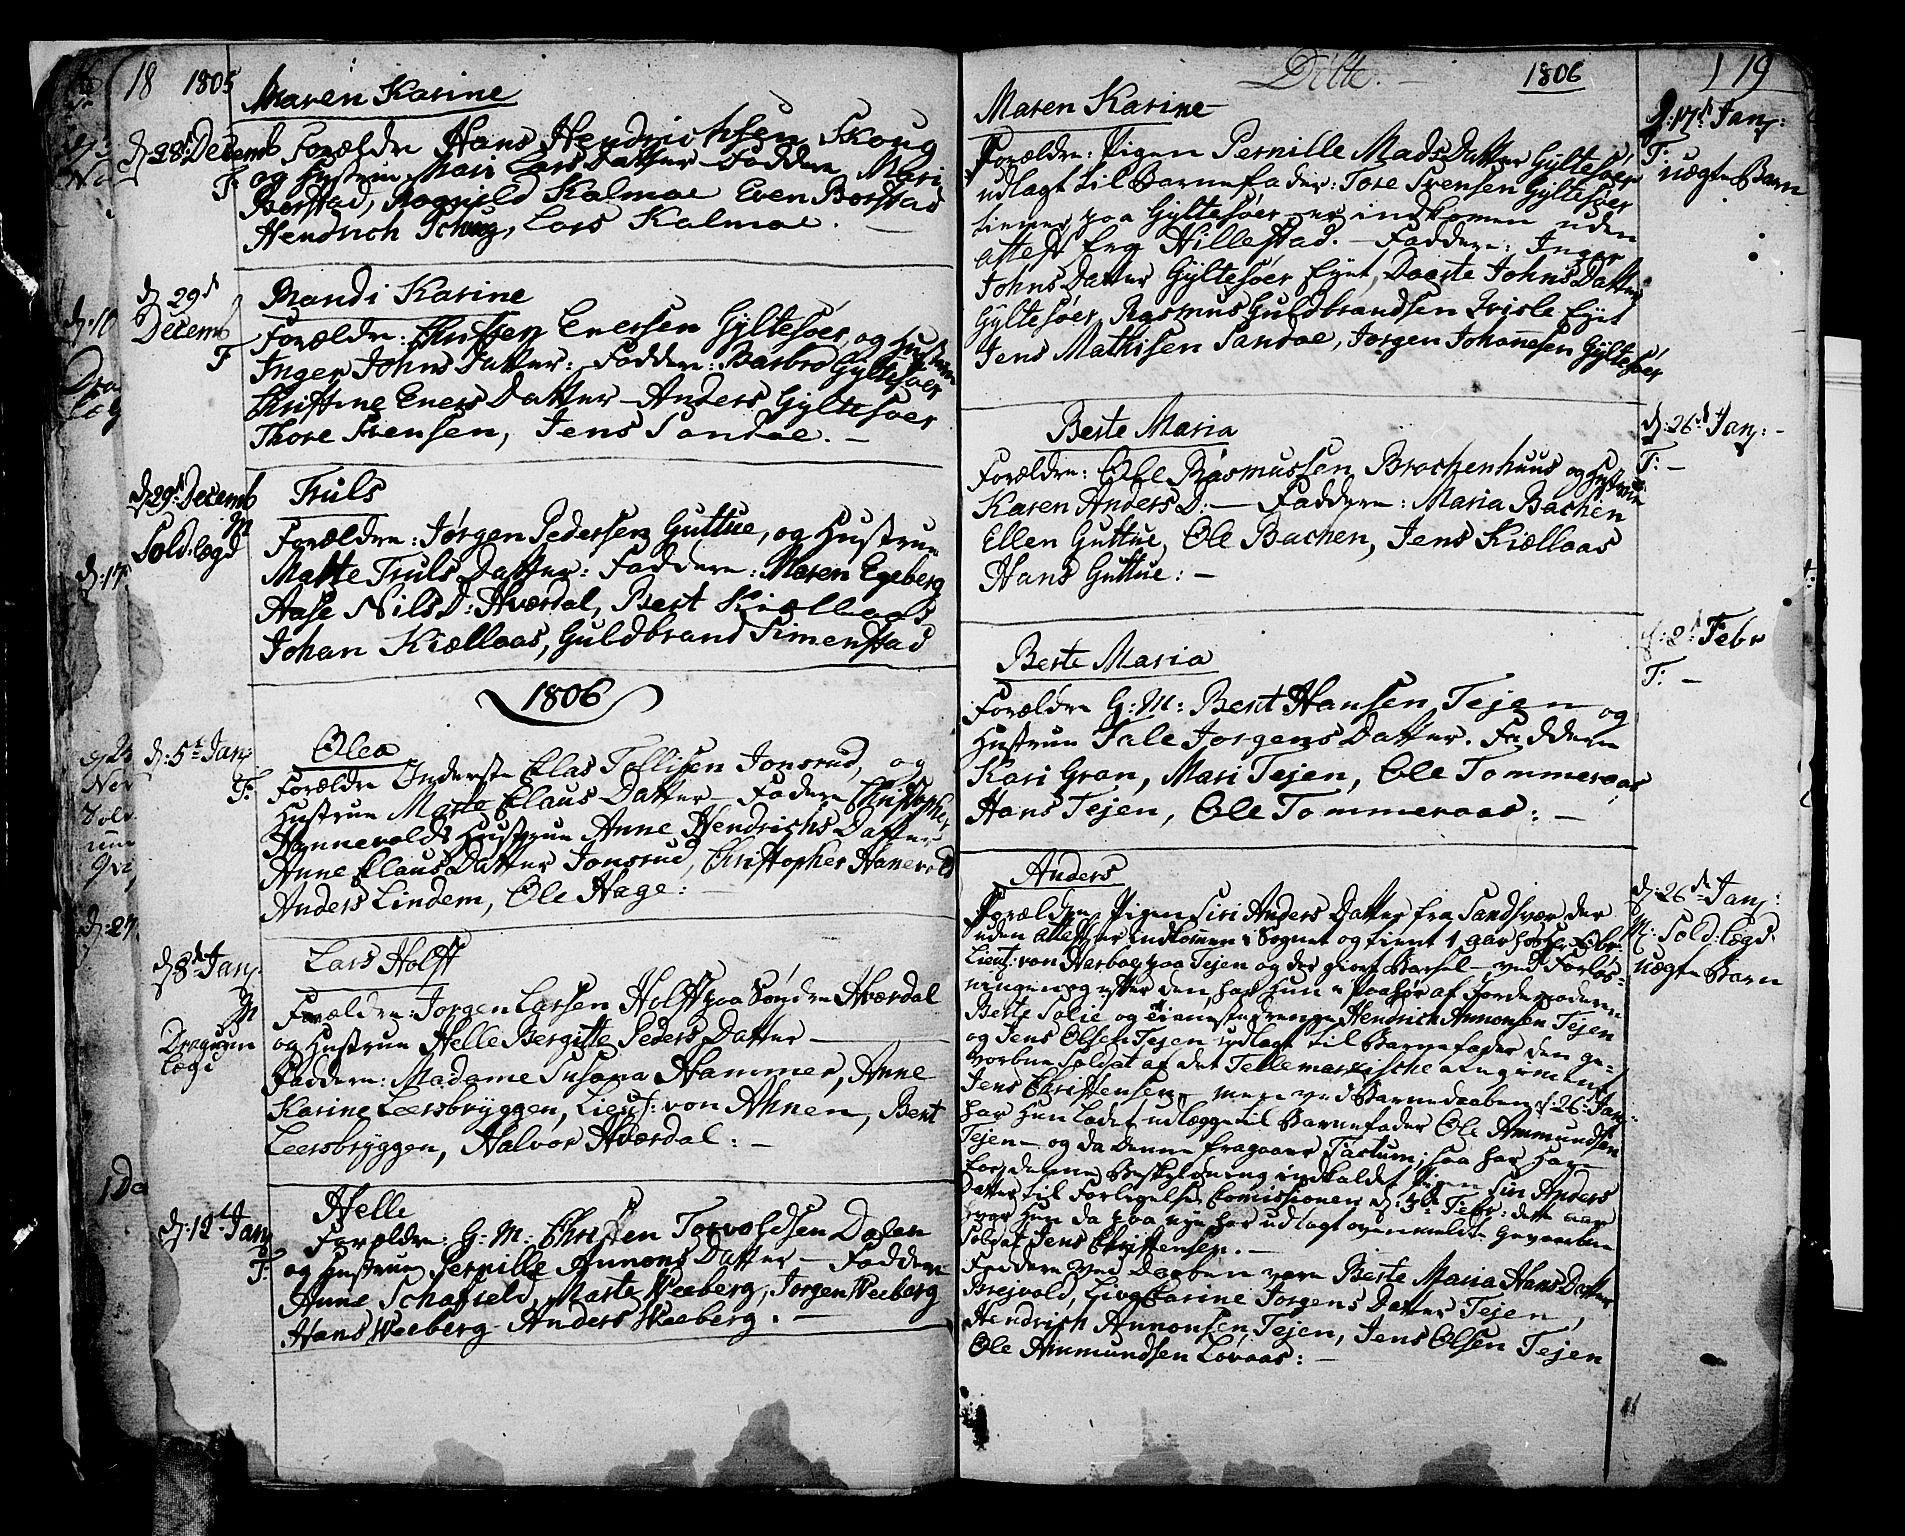 18 1805
Maren Karine
d. 28 Decemb Forældre Hans Hendrichsen Skoug
F: og Hustrue Mari Lars Datter Faddere Mari
Borstad, Rognild Kalmoe Even Borstad
Hendrich Schug, Lars Kalmoe. —
d. 29d Decemb
F
Randi Karine
Forældre: Christen Enersen Gÿltesøer, og Hustrue
Inger Johns Datter: Faddere: Barbro Gÿltesøer
Christine Eners Datter — Anders Gÿltesøer
Thore Svensen, Jens Sandoe. —
d. 29d Decemb
M
Sold: lægd
Truls
Forældre: Jørgen Pedersen Guttue, og Hustrue
Marte Truls Datter: Faddere: Maren Egeberg
Aase Nils D: Hværdal, Bert Kiællaas
Johan Kiællaas, Guldbrand Simenstad
1806
d. 5t Janj
F:
Olea
Forældre Inderste Clas Tollisen Jonsrud, og
Hustrue Marte Claus Datter — Faddere Christopher
Hannevolds Hustrue Anne Hendrichs Datter
Anne Claus Datter Jonsrud, Christopher Hanevold
Anders Lindem, Ole Hage: —
d. 8d Janj
M
Dragoun lægd
Lars Holft
Forældre: Jørgen Larsen Holft paa Søndre Hværdal
og Hustrue Helle Bergitte Peders Datter —
Faddere: Madame Susana Hammer, Anne
Karine Leersbrÿggen, Lieut: von Ahnen, Bent
Leersbrÿggen, Halvor Hværdal: —
d. 12d Janj
F:
Helle
Forældre: G: M: Christen Torvoldsen Dalen
og Hustrue Pernille Annons Datter — Faddere
Anne Schafseld, Marte Weeberg, Jørgen Weeberg
Hans Weeberg Anders Weeberg. —
Ditto. — 1806 19
Maren Karine
d. 17d Janj:
F: uægte Barn
Forældre: Pigen Pernille Mads Datter Gÿltesøer
udlagt til Barnefader: Tore Svensen Gÿltesøer
tiener paa Gÿltesøer — er indkomen uden
attest fra Hillestad. — Faddere: Inger
Johns Datter Gÿltesøer Eyet, Dorte Johns Datter
Gÿltesøer, Rasmus Guldbrandsen Eyet
Jens Mathisen Sandoe, Jørgen Johannesen Gÿltesøer
d. 26d Janj: —
F: —
Berte Maria
Forældre: Ole Rasmussen Brachenhuus og Hustrue
Karen Anders D. — Faddere: Maria Bachen
Ellen Guttue, Ole Bachen, Jens Kiællaas
Hans Guttue: —
d. 2d Febr
F: —
Berte Maria
Forældre G: M: Bent Hansen Tejen og
Hustrue Tale Jorgens Datter. Faddere
Kari Gran, Mari Tejen, Ole Tommeraas
Hans Tejen, Ole Tommeraas: —
d. 26d Janj:
M: Sold: lægd
uægte Barn
Anders
Forældre Pigen Siri Anders Datter fra Sandsvær der
uden attest er indkommen i Sognet og tient 1 aar hos Hr
Lieut: von Harboe paa Tejen og der giort Barsel — ved Forløs-
ningen og efter den har hun i paahør af Jordemoderen
Berte Solie og tienestedrenge Hendrich Annonsen Tejen
og Jens Olsen Tejen udlagt til Barnefader den ge-
vorbne Soldat af det Tellemarchische Regiment
Jens Christensen, men ved Barnedaaben d: 26: Janj:
har hun ladet udlægge til Barnefader Ole Ammundsen
Tejen — og da denne fragaaer Factum, saa har han
for denne Beskyldning indkaldet Pigen Siri Anders
Datter til Forligelses Comissionen d. 3d Febr: dette aar
hvor hun da paa nye har udlagt ovenmeldte Gevorbne
Soldat Jens Christensen. —
Faddere ved Daaben vare Berte Maria Hans Datter
Brejvold, Liv Carine Jørgens Datter Tejen,
Hendrich Annonsen Tejen, Jens Olsen Tejen
Ole Ammundsen Lovaas: —